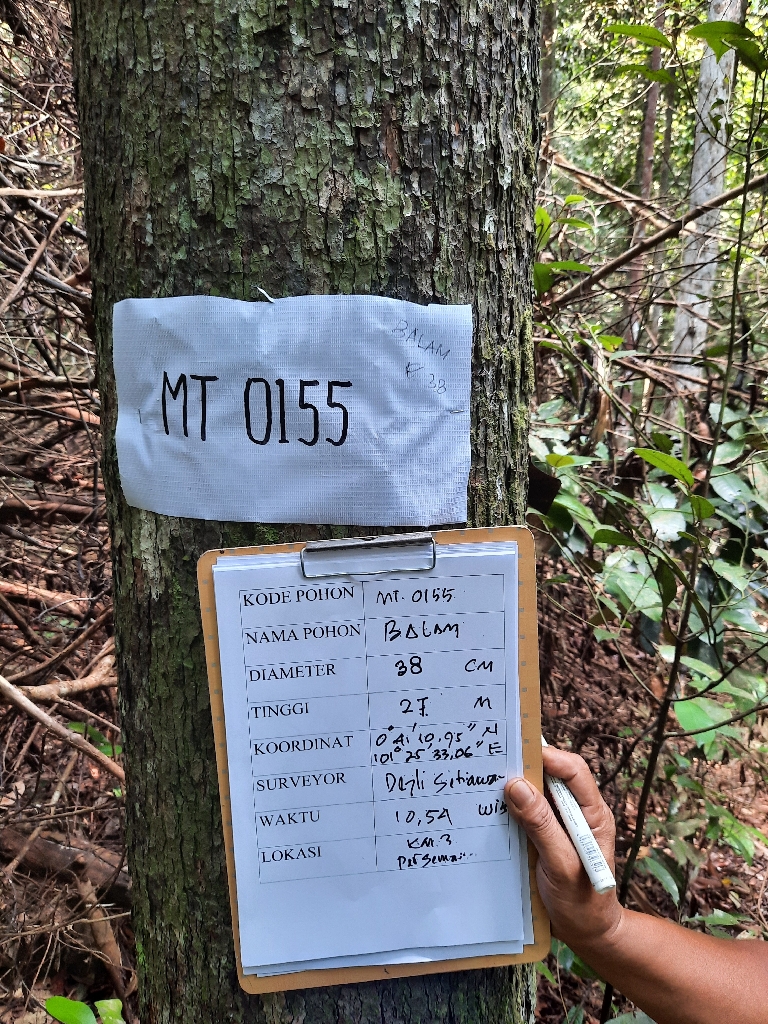 BALAM
38
MT 0155
KODE POHON MT. 0155
NAMA POHON BALAM
DIAMETER 38 CM
TINGGI 27 M
KOORDINAT 0° 41' 10,95" N
101° 25' 33,06" E
SURVEYOR Setiawan
WAKTU 10,54 WIB
LOKASI KM.3